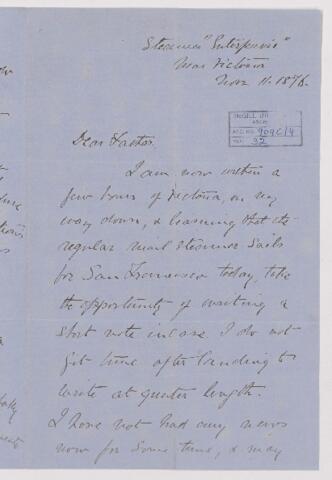 Steamer "Enterprise"
Near Victoria
Nov 11. 1876.
McGILL UNI
ARCH
ACC. NO. 909C/4
32
Dear Father,
I am now within a
few hours of Victoria, on my
way down, & learning that the
regular mail steamer sails
for San Francisco today, take
the opportunity of writing a
short note in case I do not
get time after landing to
write at greater length.
I have not had any news
now for some time, & may